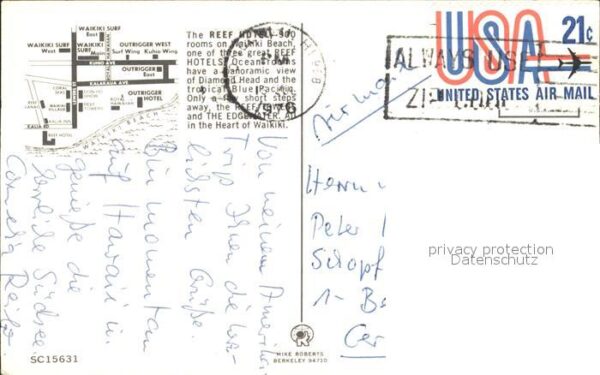 WAIKIKI SURF
East
WAIKIKI SURF
West
WAIKIKI SURF
Main
OUTRIGGER WEST
Surf Wing Kuhio Wing
OUTRIGGER
East
KUHIO AVE
KALAKAUA AVE
OUTRIGGER
HOTEL
KALIA RD
REEF HOTEL
WAIKIKI BEACH
The REEF HOTEL 500
rooms on Waikiki Beach,
one of three great REEF
HOTELS! Ocean rooms
have a panoramic view
of Diamond Head and the
tropical Blue Pacific.
Only a few short steps
away, the REEF TOWERS
and THE EDGEWATER. All
in the Heart of Waikiki.
1976
ALWAYS USE
ZIP CODE
USA 21c
UNITED STATES AIR MAIL
Air mail
Von meinem Amerika-
Trip Ihnen die herz-
lichsten Grüße.
Bin momentan
auf Hawaii u.
genieße die
herrliche Südsee.
Cornelia
Herrn
Peter
Schopf
1 - Be
Ger
privacy protection
Datenschutz
SC15631
R
MIKE ROBERTS
BERKELEY 94710